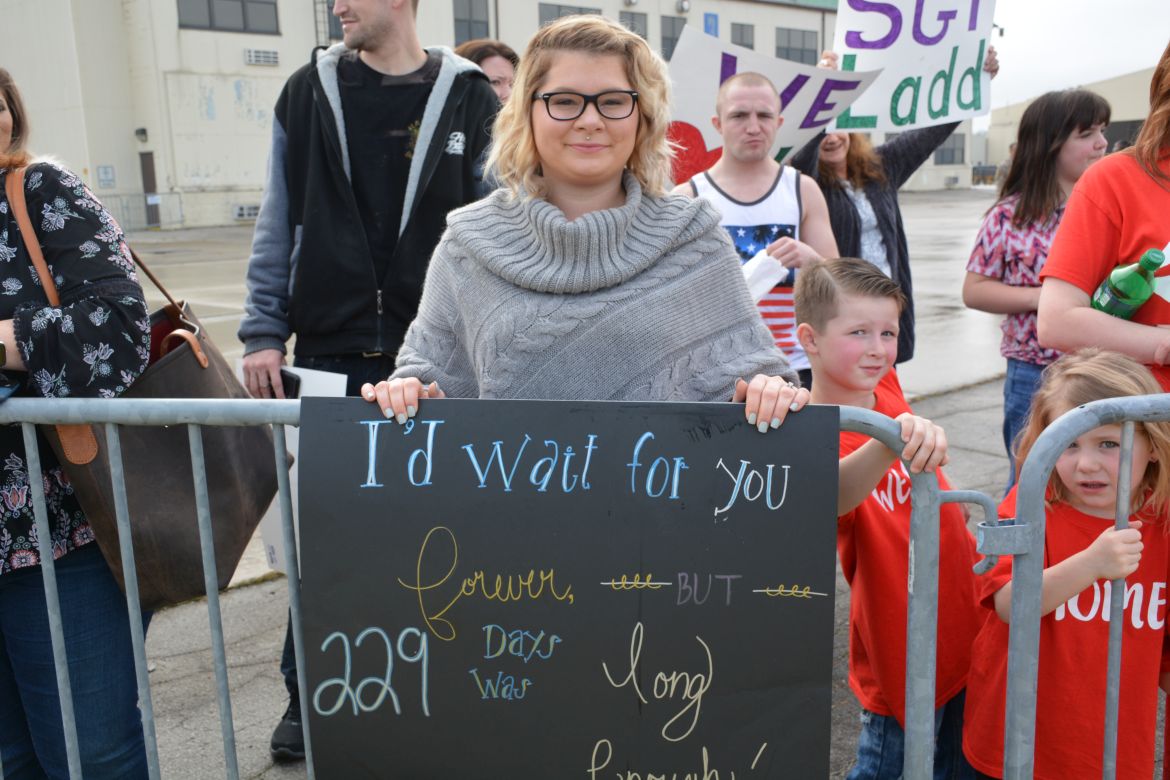 SGT
Ladd
I'd Wait for you
forever, BUT
229 Days
Was long
Enough!
WE
HOME